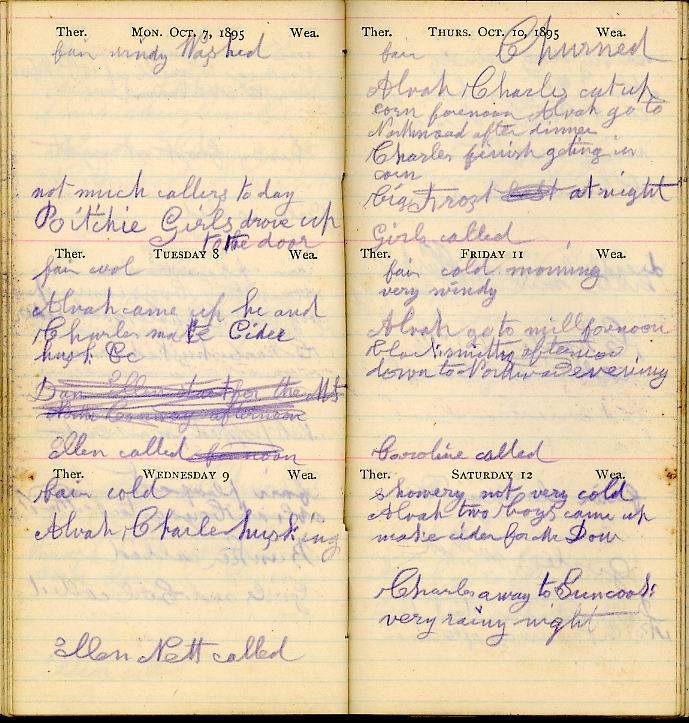 Ther. Mon. Oct. 7, 1895 Wea.
fair windy Washed
not much callers to day
Ritchie Girls drove up
to the door
Ther. Tuesday 8 Wea.
fair cool
Alvah came up he and
Charles make Cider
husk &c
Dan Ellen start for the
North Conway afternoon
Ellen called forenoon
Ther. Wednesday 9 Wea.
fair cold
Alvah, Charles husking
Ellen Nett called
Ther. Thurs. Oct. 10, 1895 Wea.
fair Churned
Alvah, Charles cut up
corn forenoon Alvah go to
Northwood after dinner
Charles finish geting in
corn
big Frost at night
Girls called
Ther. Friday 11 Wea.
fair cold morning
very windy
Alvah go to mill fornoon
blacksmiths afternoon
down to Northwood evening
Caroline called
Ther. Saturday 12 Wea.
showery not very cold
Alvah two boys came up
make cider for Mr Dow
Charles away to Suncook
very rainy night